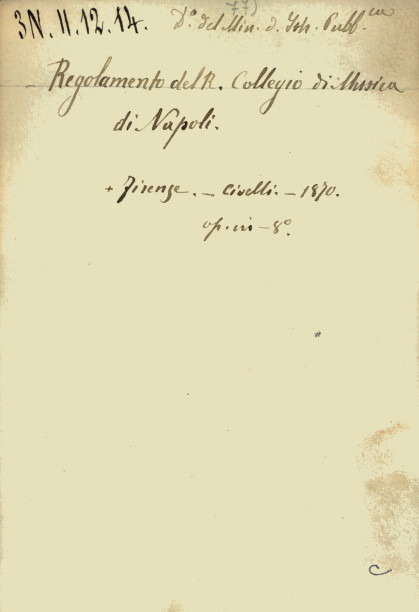 77)
3N. II. 12. 14. D.º del Min. d. Ist. Pubb.ca
Regolamento del R. Collegio di Musica
di Napoli.
+ Firenze. - Civelli. - 1870.
op. in - 8º.
C